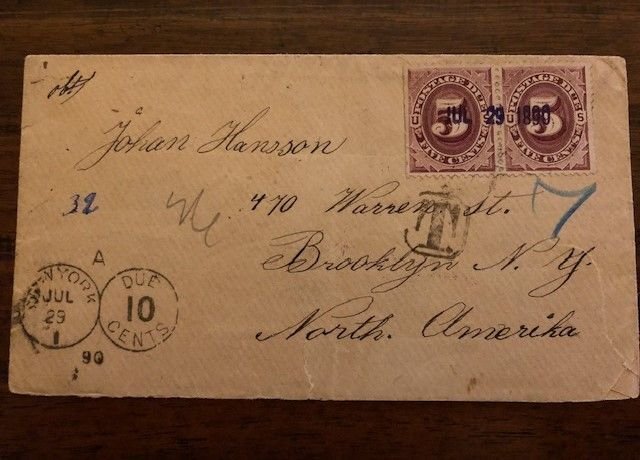 POSTAGE DUE
U 5 S
FIVE CENTS
POSTAGE DUE
U 5 S
FIVE CENTS
JUL 29 1890
Johan Hansson
32
470 Warren St.
T
7
Brooklyn N. Y.
North. Amerika
A
NEW YORK
JUL
29
1
90
DUE
10
CENTS